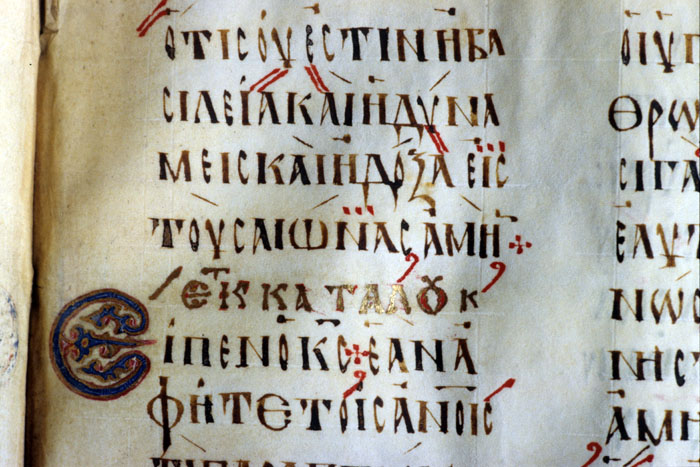 ΟΤΙCΟΥΕCΤΙΝΗΒΑ
CΙΛΕΙΑΚΑΙΗΔΥΝΑ
ΜΕΙCΚΑΙΗΔΟΞΑΕΙC
ΤΟΥCΑΙΩΝΑCΑΜΗ
ΕΚΚΑΤΑΛȢΚ
ΕΙΠΕΝΟΚC̅ΕΑΝΑ
ΦΗΤΕΤΟΙCΑΝΟΙC
ΟΙΥΠ
ΘΡΩ
CΙΓΑ
ΕΑΥΤ
ΝΩC
ΝΗCΤ
ΑΜΗ